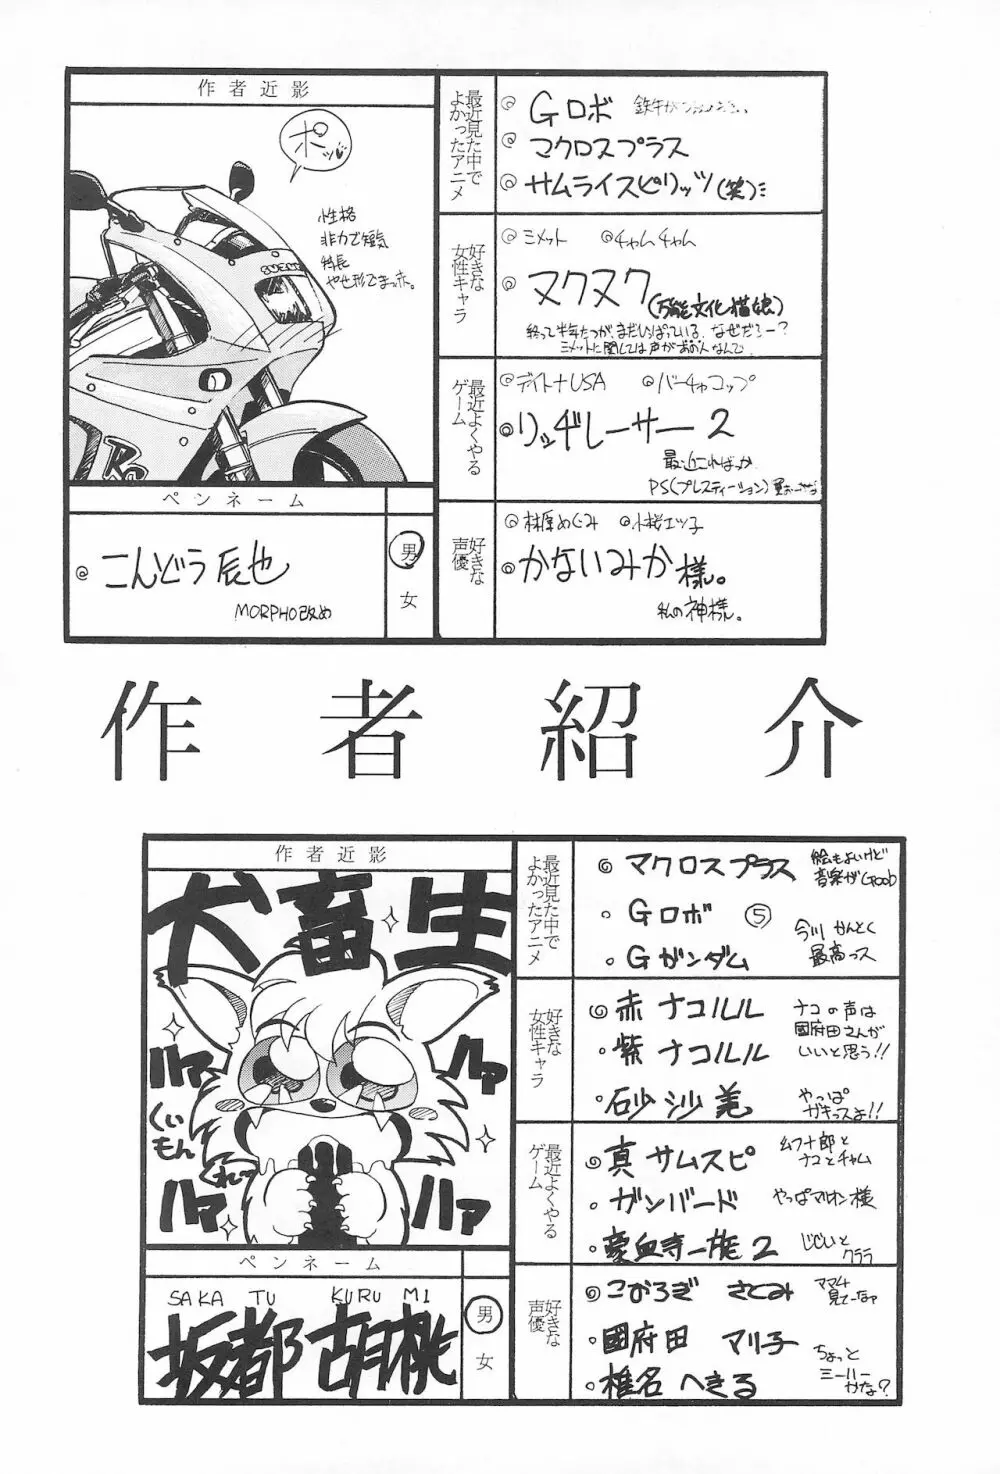 作者近影
ポッ
性格
非力で短気
特長
やせ形でまった。
ペンネーム
◎こんどう辰也
MORPHO改め
男
女
最近見た中で
よかったアニメ
◎Gロボ
◎マクロスプラス
◎サムライスピリッツ(笑)
好きな
女性キャラ
◎ミメット ◎チャムチャム
◎ヌクヌク(万能文化猫娘)
終って半年たつがまだいばっている。なぜだろー?
ミメットに関しては声があの人なんで
最近よくやる
ゲーム
◎デイトナUSA ◎バーチャコップ
◎リッヂレーサー2
最近こればっか
PS(プレステイーション)
好きな
声優
◎林原めぐみ ◎小桜エツ子
◎かないみか様。
私の神様。
作者紹介
作者近影
犬畜生
ハァ
ハァ
くいもん
くれっ
ハァ
ハァ
ペンネーム
SAKA TU KURU MI
坂都胡桃
男
女
最近見た中で
よかったアニメ
◎マクロスプラス 絵もよいけど
音楽がGood
・Gロボ ⑤
・Gガンダム
今川かんとく
最高っス
好きな
女性キャラ
◎赤ナコルル
・紫ナコルル
・砂沙美
ナコの声は
國府田さんが
いいと思う!!
やっぱ
ガキっスよ!!
最近よくやる
ゲーム
◎真サムスピ
・ガンバード
・豪血寺一族2
幻十郎と
ナコとチャム
やっぱマリオン様
じじいと
クララ
好きな
声優
◎こおろぎさとみ
・國府田マリ子
・椎名へきる
ママ4
見てーなァ
ちょっと
ミーハー
かな?